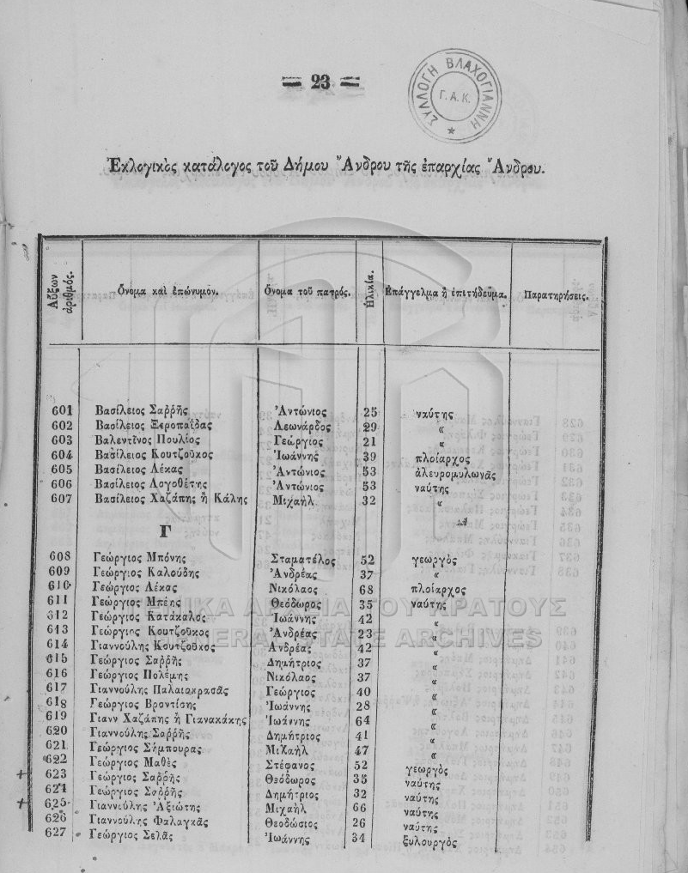 = 23 =
ΣΥΛΛΟΓΗ ΒΛΑΧΟΓΙΑΝΝΗ
Γ.Α.Κ.
Ἐκλογικὸς κατάλογος τοῦ Δήμου Ἄνδρου τῆς ἐπαρχίας Ἄνδρου.
Αὔξων ἀριθμός. Ὄνομα καὶ ἐπώνυμον. Ὄνομα τοῦ πατρός. Ἡλικία. Ἐπάγγελμα ἢ ἐπιτήδευμα. Παρατηρήσεις.
601 Βασίλειος Σαῤῥῆς Ἀντώνιος 25 ναύτης
602 Βασίλειος Ξεροπαΐδας Λεωνάρδος 29 «
603 Βαλεντῖνος Πουλίος Γεώργιος 21 «
604 Βασίλειος Κουτζοῦκος Ἰωάννης 39 πλοίαρχος
605 Βασίλειος Λέκας Ἀντώνιος 53 ἀλευρομυλωνᾶς
606 Βασίλειος Λογοθέτης Ἀντώνιος 53 ναύτης
607 Βασίλειος Χαζάπης ἢ Κάλης Μιχαὴλ 32 «
Γ
608 Γεώργιος Μπόνης Σταματέλος 52 γεωργὸς
609 Γεώργιος Καλούδης Ἀνδρέας 37 «
610 Γεώργιος Λέκας Νικόλαος 68 πλοίαρχος
611 Γεώργιος Μπέης Θεόδωρος 35 ναύτης
612 Γεώργιος Κατάκαλος Ἰωάννης 42 «
613 Γεώργιος Κουτζοῦκος Ἀνδρέας 23 «
614 Γιαννούλης Κουτζοῦκος Ἀνδρέας 42 «
615 Γεώργιος Σαῤῥῆς Δημήτριος 37 «
616 Γεώργιος Πολέμης Νικόλαος 37 «
617 Γιαννούλης Παλαιοκρασᾶς Γεώργιος 40 «
618 Γεώργιος Βροντίσης Ἰωάννης 28 «
619 Γιανν Χαζάπης ἢ Γιανακάκης Ἰωάννης 64 «
620 Γιαννούλης Σαῤῥῆς Δημήτριος 41 «
621 Γεώργιος Σάμπουρας Μιχαὴλ 47 «
622 Γεώργιος Μαθὲς Στέφανος 52 γεωργὸς
623 Γεώργιος Σαῤῥῆς Θεόδωρος 35 ναύτης
624 Γεώργιος Σαῤῥῆς Δημήτριος 32 ναύτης
625 Γιαννούλης Ἀξιώτης Μιχαὴλ 66 ναύτης
626 Γιαννούλης Φαλαγκᾶς Θεοδώσιος 26 ναύτης
627 Γεώργιος Σελᾶς Ἰωάννης 34 ξυλουργὸς
ΓΕΝΙΚΑ ΑΡΧΕΙΑ ΤΟΥ ΚΡΑΤΟΥΣ
GENERAL STATE ARCHIVES